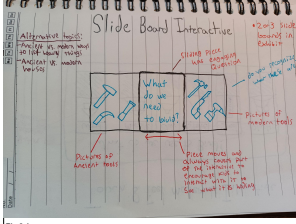 Slide Board Interactive
Alternative topics:
-Ancient vs. modern ways
to lift heavy things
-Ancient vs. modern
houses
* 2 or 3 slide
boards in
Exhibit
Sliding piece
has engaging
question
What
do we
need
to build?
Do you recognize
Pictures of
modern tools
Pictures of
Ancient tools
Piece moves and
always covers part
of the interactive to
encourage kids to
interact with it to
see what it is hiding
Date